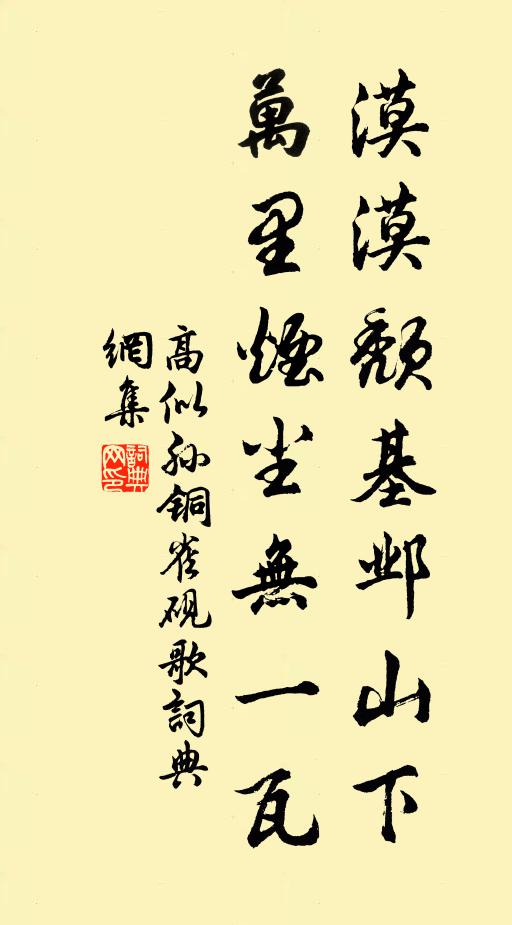 漠漠頽基邺山下
萬里煙尘無一瓦
高似孙铜雀砚歌詞典
網集
詞典
网印